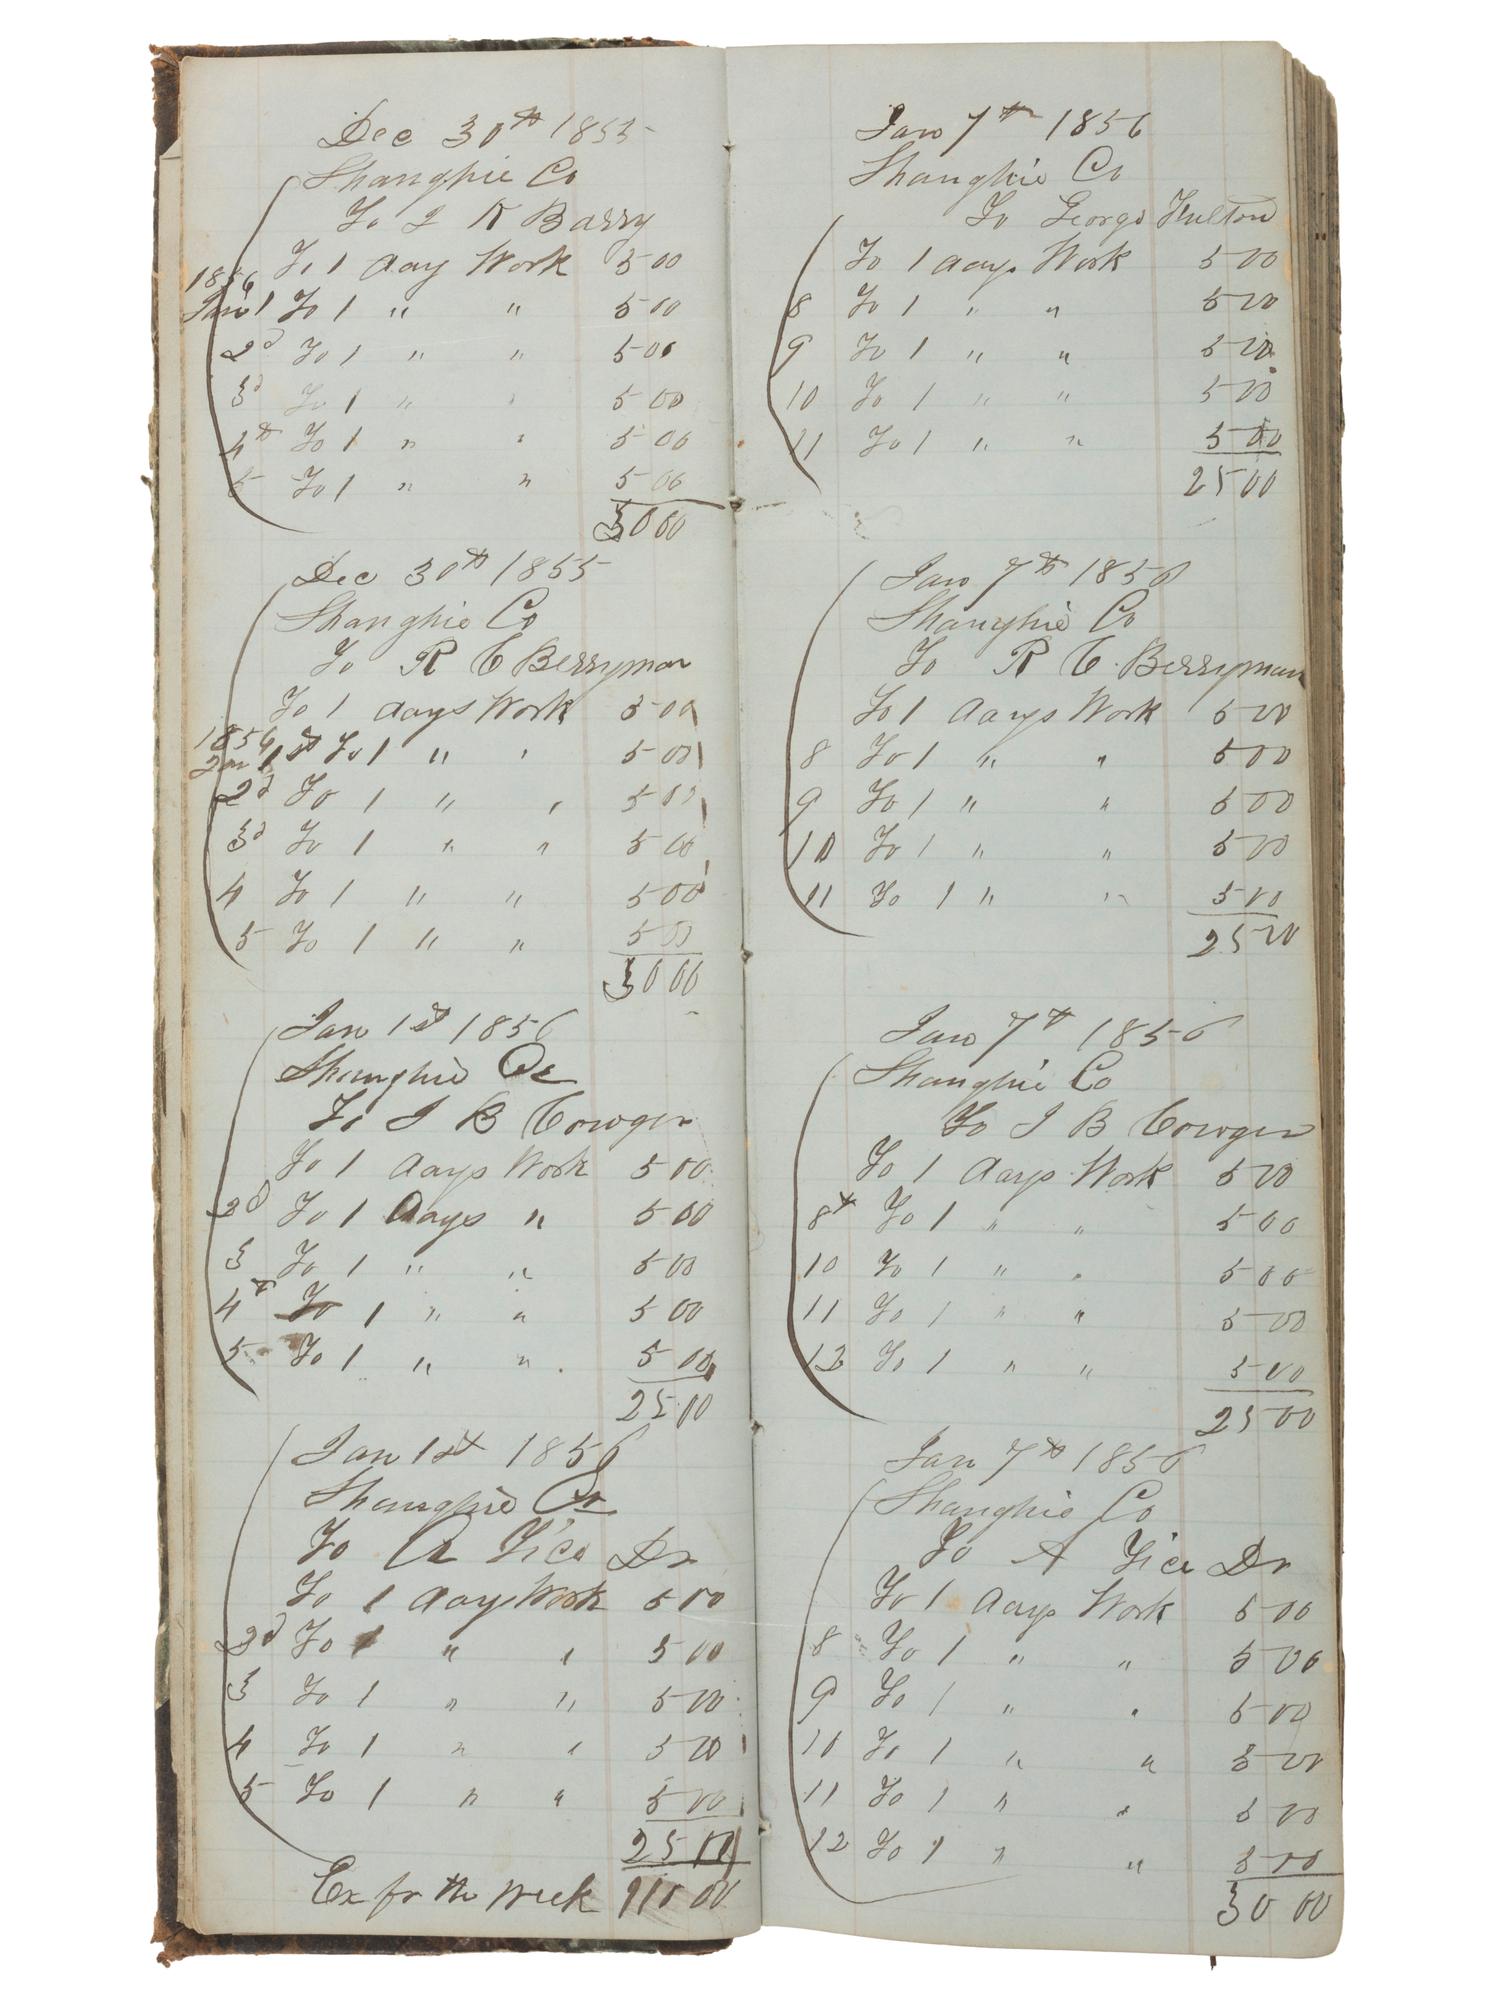 Dec 30th 1855
Shanghie Co
To J K Barry
To 1 days Work 5 00
1856
Jan 1 To 1 " " 5 00
2d To 1 " " 5 00
3d To 1 " " 5 00
4th To 1 " " 5 00
5 To 1 " " 5 00
30 00
Dec 30th 1855
Shanghie Co
To R C Berryman
To 1 days Work 5 00
1856
Jan 1st To 1 " " 5 00
2d To 1 " " 5 00
3d To 1 " " 5 00
4 To 1 " " 5 00
5 To 1 " " 5 00
30 00
Jan 1st 1856
Shanghie Co
To J B Cowger
To 1 days Work 5 00
2d To 1 days " 5 00
3 To 1 " " 5 00
4th To 1 " " 5 00
5 To 1 " " 5 00
25 00
Jan 1st 1856
Shanghie Co
To A Dr
To 1 days Work 5 00
2d To 1 " " 5 00
3 To 1 " " 5 00
4 To 1 " " 5 00
5 To 1 " " 5 00
25 00
Ex for the Week 110 00
Jan 7th 1856
Shanghie Co
To George Fulton
To 1 days Work 5 00
8 To 1 " " 5 00
9 To 1 " " 5 00
10 To 1 " " 5 00
11 To 1 " " 5 00
25 00
Jan 7th 1856
Shanghie Co
To R C Berryman
To 1 days Work 5 00
8 To 1 " " 5 00
9 To 1 " " 5 00
10 To 1 " " 5 00
11 To 1 " " 5 00
25 00
Jan 7th 1856
Shanghie Co
To J B Cowger
To 1 days Work 5 00
8th To 1 " " 5 00
10 To 1 " " 5 00
11 To 1 " " 5 00
12 To 1 " " 5 00
25 00
Jan 7th 1856
Shanghie Co
To A Dr
To 1 days Work 5 00
8 To 1 " " 5 00
9 To 1 " " 5 00
10 To 1 " " 5 00
11 To 1 " " 5 00
12 To 1 " " 5 00
30 00